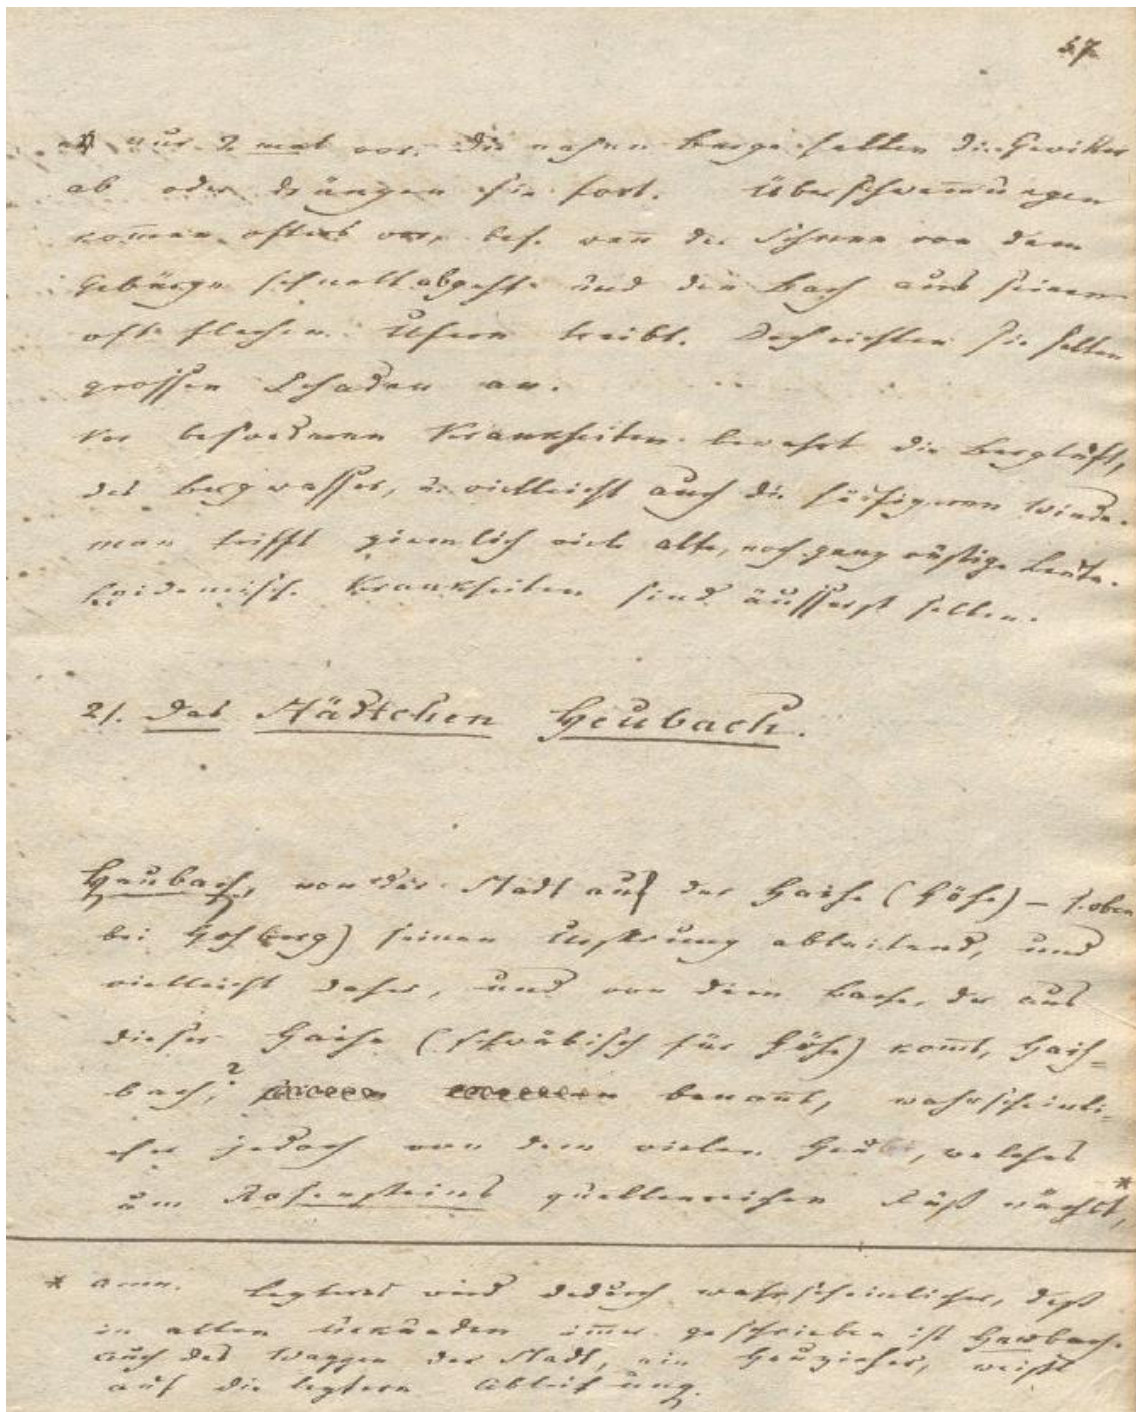 57.
nur 2 mal vor. Die nahen Berge halten die Gewitter
ab oder drängen sie fort. Überschwem̄ungen
kom̄en öfters vor, bes. wen̄ der Schnee von dem
Gebürge schnell abgeht und den Bach aus seinen
oft flachen Ufern treibt. Doch richten sie selten
grossen Schaden an.
Vor besonderen Krankheiten bewahrt die Bergluft,
das Bergwasser, u. vielleicht auch die häufigeren Winde.
man trifft ziemlich viele alte, noch ganz rüstige Leute.
Epidemische Krankheiten sind äusserst selten.
2/. Das Städtchen Heubach.
Heubach, von der Stadt auf der Haihe (Höhe) – s. oben
bei Hohberg) seinen Ursprung ableitend, und
vielleicht daher, und von dem Bache, der aus
dieser Haihe (schwäbisch für Höhe) kom̄t, Haih=
bach,? benan̄t, wahrscheinli=
cher jedoch von dem vielen Heu, welches
um Rosensteins quellenreichen Fuß wächst,*
* Anm. Letzteres wird dadurch wahrscheinlicher, daß
in alten Urkunden im̄er geschrieben ist Hewbach.
Auch das Wappen der Stadt, ein Heuzieher, weißt
auf die letztere Ableitung.